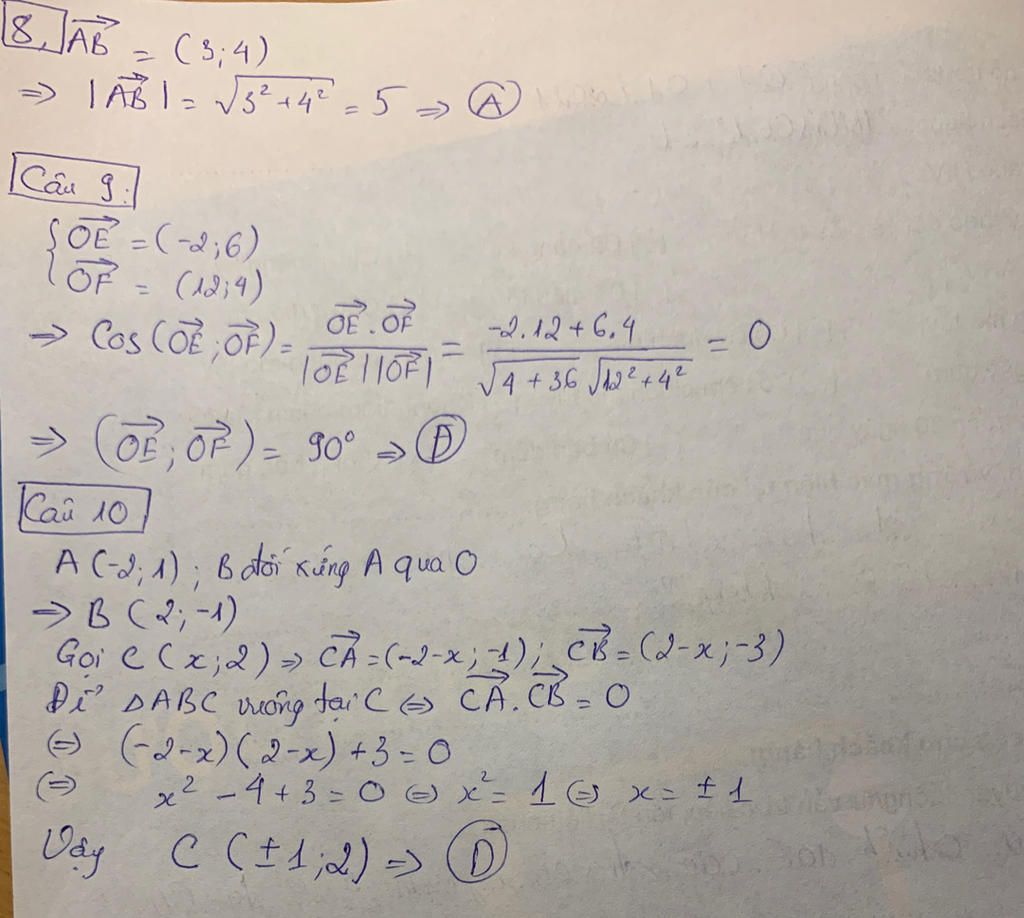 8. AB→ = (3; 4)
=> |AB→| = √(3² + 4²) = 5 => Ⓐ
Câu 9:
{ OE→ = (-2; 6)
OF→ = (12; 4)
=> Cos(OE→; OF→) = OE→ . OF→ / |OE→| |OF→| = -2.12 + 6.4 / √(4 + 36) √(12² + 4²) = 0
=> (OE→; OF→) = 90° => Ⓓ
Câu 10
A (-2; 1) ; B đối xứng A qua O
=> B (2; -1)
Gọi C (x; 2) => CA→ = (-2-x; -1) ; CB→ = (2-x; -3)
Để ΔABC vuông tại C <=> CA→ . CB→ = 0
<=> (-2-x)(2-x) + 3 = 0
<=> x² - 4 + 3 = 0 <=> x² = 1 <=> x = ± 1
Vậy C (± 1; 2) => Ⓓ